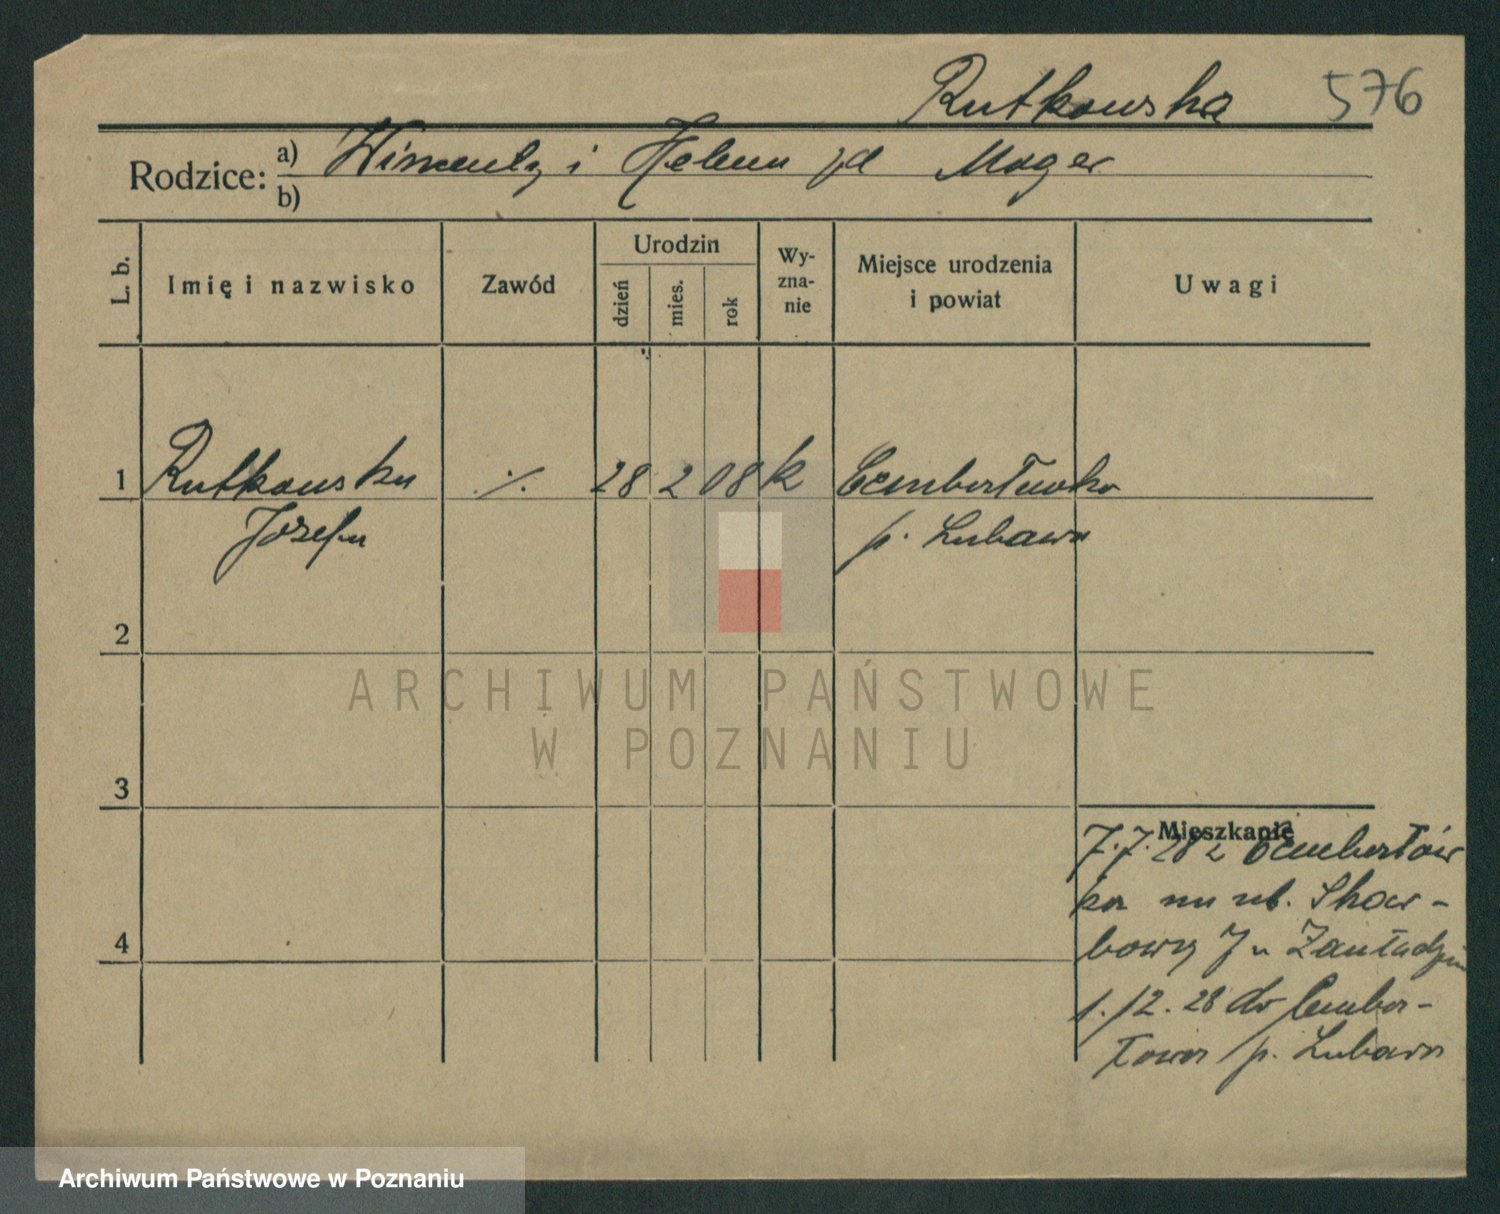 Rutkowska 576
Rodzice: a) Wincenty i Helena zd Mager
b)
L. b. Imię i nazwisko Zawód Urodzin dzień mies. rok Wyznanie Miejsce urodzenia i powiat Uwagi
1 Rutkowska ./. 28 2 08 k Cembertowko
Józefa p. Lubawa
2
ARCHIWUM PAŃSTWOWE
W POZNANIU
3
Mieszkanie
7.7.28 z Cembertów
ka na ul. Skar-
4
bowy 7 u
1.12.28 do Cember-
towa p. Lubawa
Archiwum Państwowe w Poznaniu